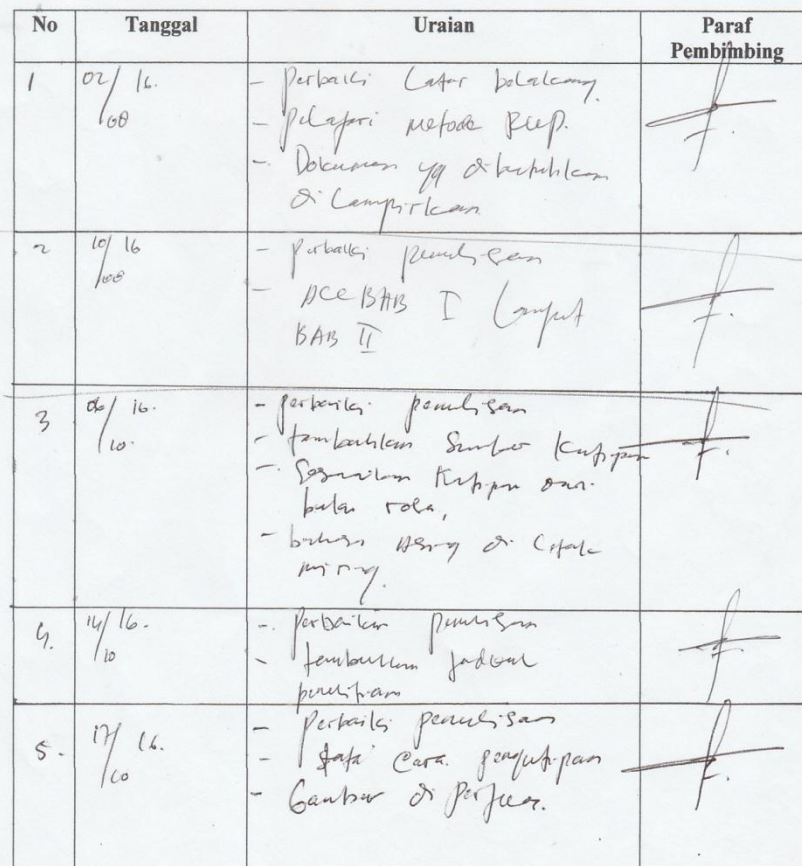 No Tanggal Uraian Paraf Pembimbing
1 02/08 16. - Perbaiki Latar belakang.
- pelajari metode RUP.
- Dokumen yg dibutuhkan
di Lampirkan
2 10/08 16 - Perbaiki penulisan
- Acc BAB I Lanjut
BAB II
3 06/10 16. - perbaiki penulisan
- tambahkan Sumber Kutipan
- Sesuaikan Kutipan dari
buku rosa,
- bahasa Asing di Cetak
miring.
4. 14/10 16. - Perbaikan penulisan
- tambahkan jadwal
penelitian
5. 17/10 16. - Perbaiki penulisan
- tata cara pengutipan
- Gambar di Perjelas.